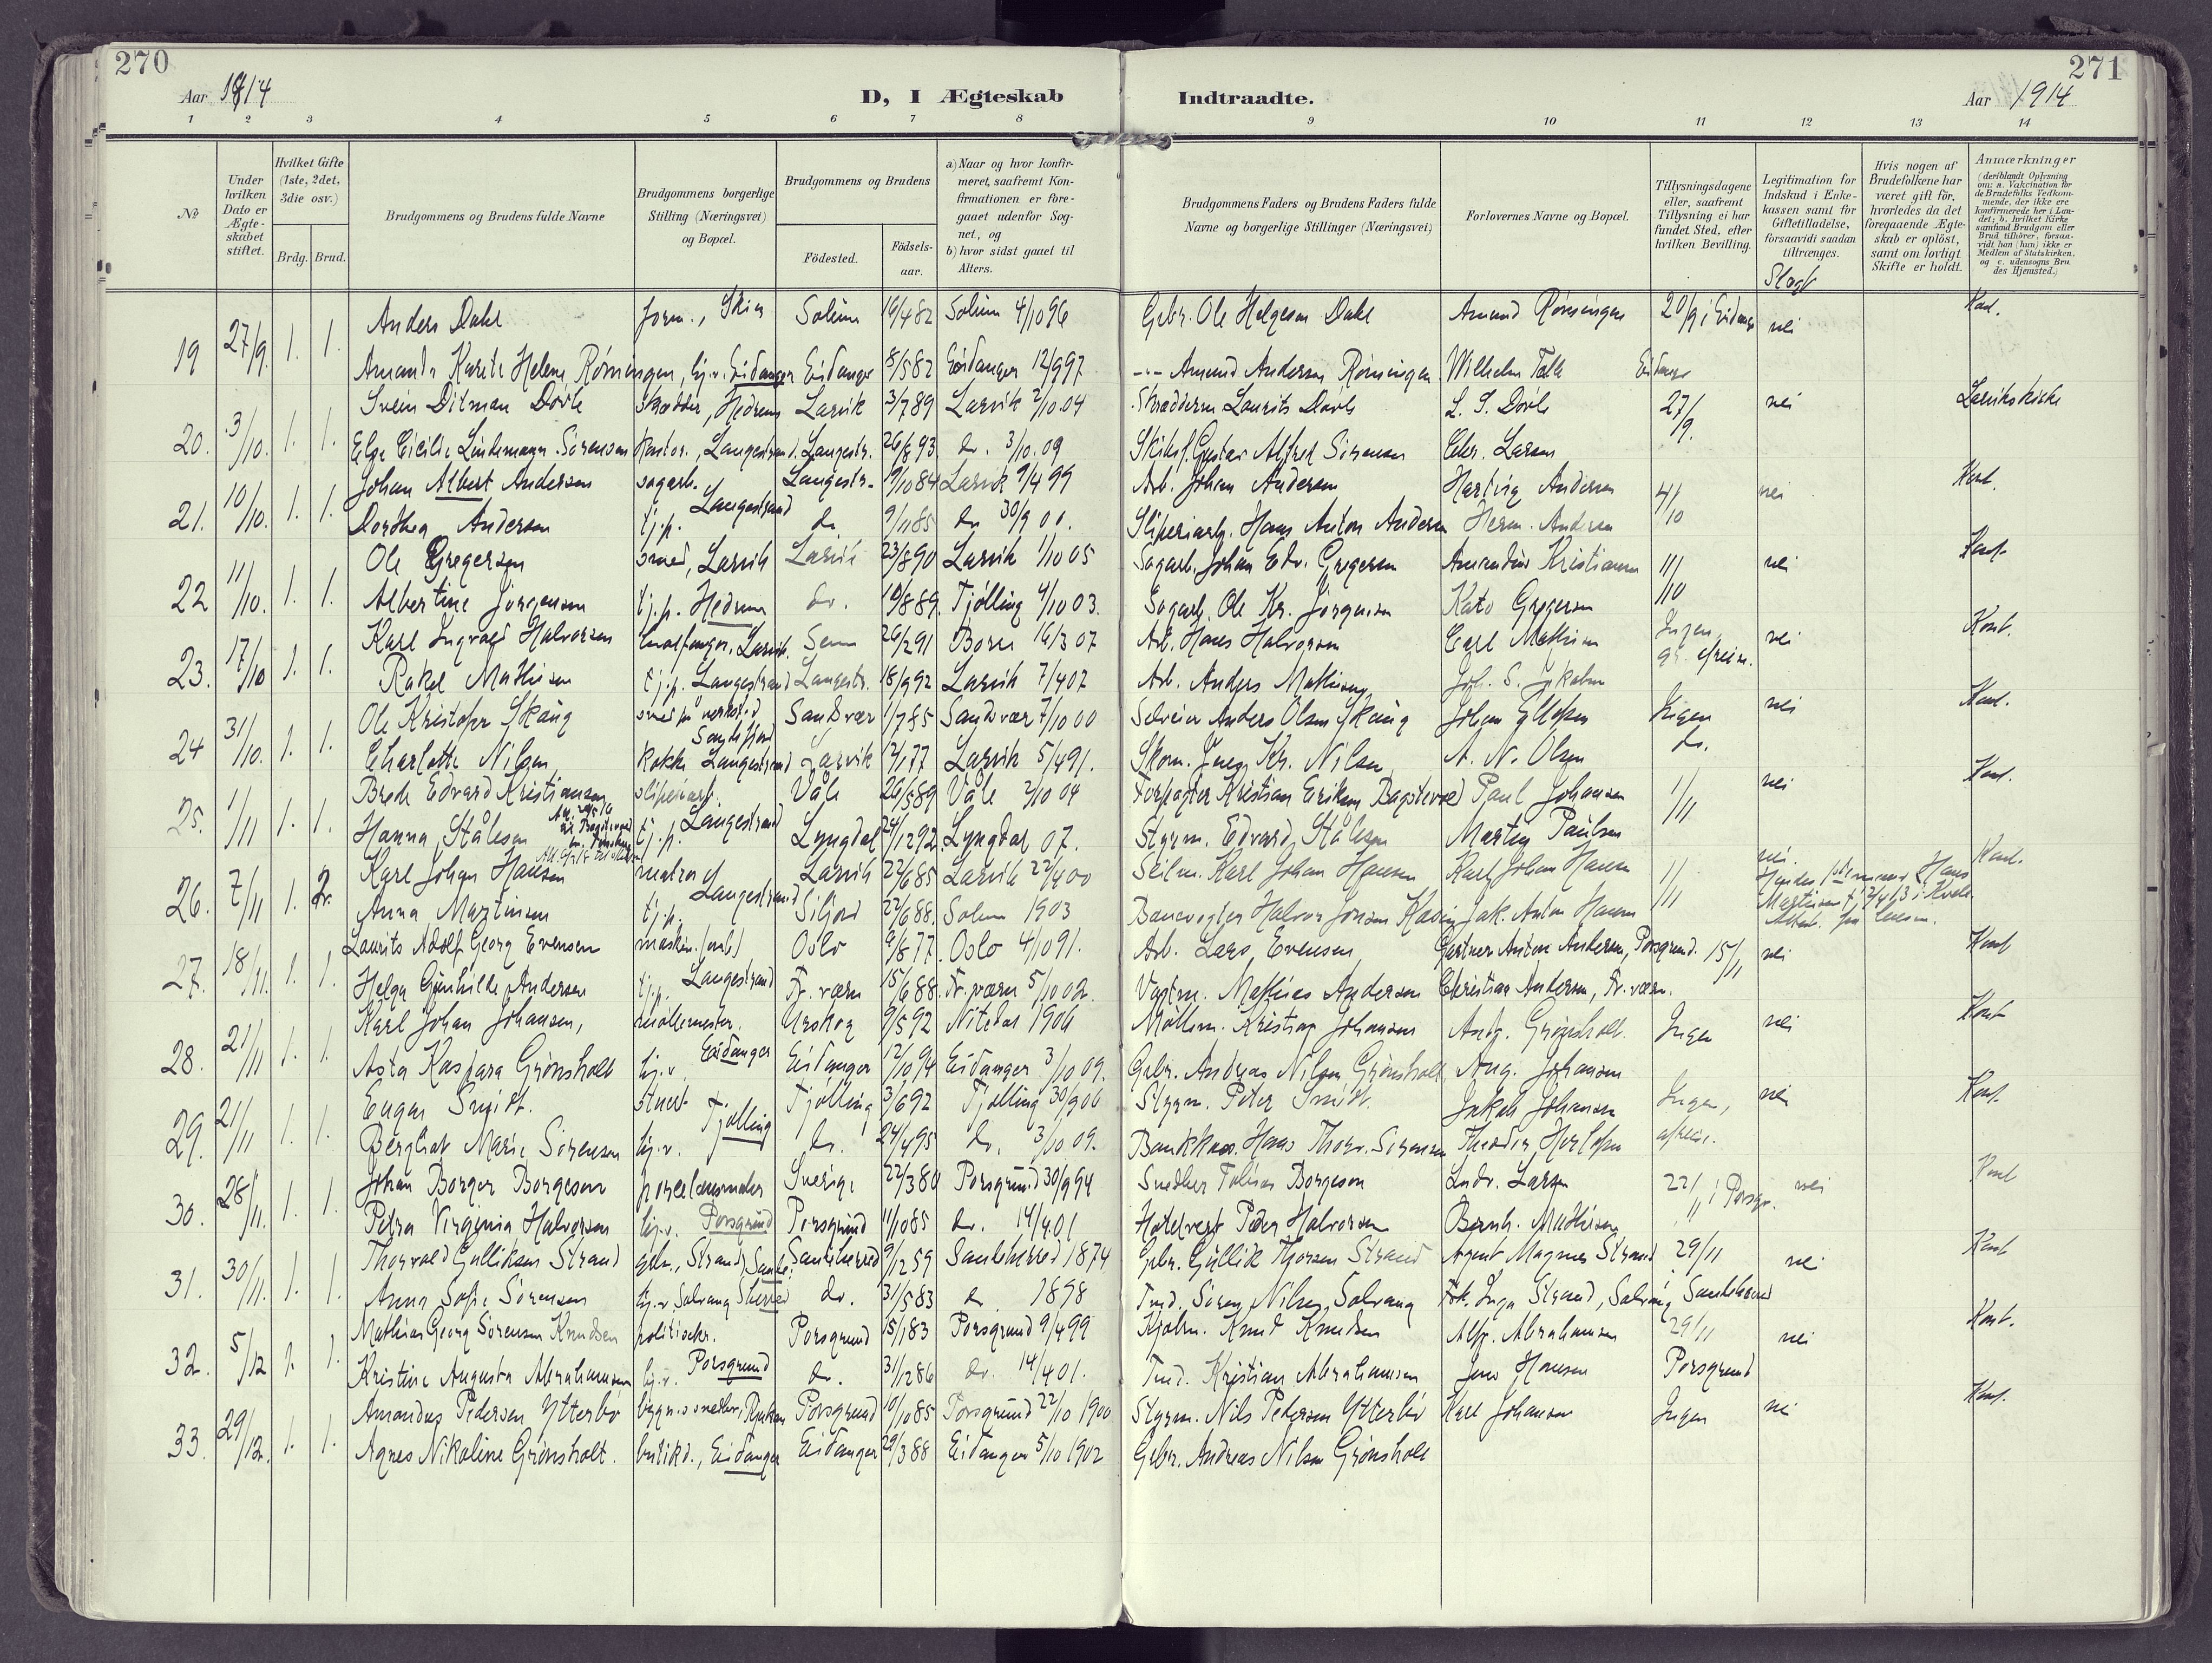 270
271
Aar 1914
D, I Ægteskab
Indtraadte.
Aar 1914
1 2 3 4 5 6 7 8 9 10 11 12 13 14
No
Under hvilken Dato er Ægteskabet stiftet.
Hvilket Gifte (1ste, 2det, 3die osv.)
Brdg. Brud.
Brudgommens og Brudens fulde Navne
Brudgommens borgerlige Stilling (Næringsvei) og Bopæl.
Brudgommens og Brudens
Födested.
Födsels-aar.
a) Naar og hvor konfirmeret, saafremt Konfirmationen er foregaaet udenfor Sognet, og
b) hvor sidst gaaet til Alters.
Brudgommens Faders og Brudens Faders fulde Navne og borgerlige Stillinger (Næringsvei)
Forlovernes Navne og Bopæl.
Tillysningsdagene eller, saafremt Tillysning ei har fundet Sted, efter hvilken Bevilling.
Legitimation for Indskud i Enkekassen samt for Giftetilladelse, forsaavidt saadan tiltrænges.
Slægt
Hvis nogen af Brudefolkene har været gift för, hvorledes da det foregaaende Ægteskab er oplöst, samt om lovligt Skifte er holdt.
Anmærkninger (deriblandt Oplysning om: a. Vakcination for de Brudefolks Vedkommende, der ikke ere konfirmerede her i Landet; b. hvilket Kirkesamfund Brudgom eller Brud tilhörer, forsaavidt han (hun) ikke er Medlem af Statskirken, og c. udensogns Brudes Hjemsted.)
19 27/9. 1. 1. Anders Dahl form., Skien Solum 16/4 82 Solum 4/10 96 Gbr. Ole Helgesen Dahl Amund Rønningen 20/9 i Eidanger nei
Amanda Karete Helene Rønningen, hj.v. Eidanger Eidanger 8/5 82 Eidanger 12/9 97 -"- Amund Andersen Rønningen Wilhelm Falk
20. 3/10. 1. 1. Svein Ditman Dovle Skrædder, Hedrum Larvik 3/7 89 Larvik 2/10 04 Skrædderm Laurits Dovle L. S. Dovle 27/9. nei Larvikskirke
Elga Cicilie Lindemann Sørensen Kontor., Langestrand. Langestr. 26/8 93 do. 3/10. 09 Skibsf. Gustav Alfred Sørensen Chr. Larsen
21. 10/10. 1. 1. Johan Albert Andersen sagarb. Langestr. 9/10 84 Larvik 9/4 99 Arb. Johan Andersen Hartvig Andersen 4/10 nei Kont.
Dorthea Andersen tj.p. Langestrand do 9/11 85 do 30/9 00. Sliperiarb. Hans Anton Andersen Herm. Andersen
22 11/10. 1. 1. Ole Gregersen smed, Larvik Larvik 23/8 90 Larvik 1/10 05 Sagarb. Johan Edv. Gregersen Amandus Kristiansen 11/10 nei Kont.
Albertine Jørgensen tj.p. Hedrum do. 10/8 89. Tjølling 4/10 03. Sagarb. Ole Kr. Jørgensen Kato Gregersen
23. 17/10 1. 1. Karl Ingvald Halvorsen hvalfanger, Larvik. Sem 26/2 91 Borre 16/3 07 Arb. Hans Halvorsen Carl Mathisen Ingen nei Kont.
Rakel Mathisen tj.p. Langestrand Langestr. 18/9 92 Larvik 7/4 07 Arb. Anders Mathisen Joh. S. Jakobsen
24 31/10. 1. 1. Ole Kristofer Skaug smed Sandefjord Sandsvær 1/7 85 Sandsvær 7/10 00 Selveier Anders Olsen Skaug Johan Ellefsen Ingen nei Kont.
Charlotte Nilsen Kokke Langestrand Larvik Larvik 5/4 91. Skom. Kr. Nilsen A. N. Olsen do.
25. 1/11 1. 1. Brede Edvard Kristiansen sliperiarb. Våle 26/5 89 Våle 2/10 04 Forpagter Kristian Eriksen Bagstevold Paul Johansen 1/11 nei Kont.
Hanna Ståleson tj.p. Langestrand Lyngdal 24/12 92. Lyngdal 07. Styrm. Edvard Ståleson Martin Paulsen
26. 7/11 1. 2. Karl Johan Hansen matros Larvik 22/6 85 Larvik 22/4 00 Seilm. Karl Johan Hansen Karl Johan Hansen 1/11 nei. Kont.
Anna Martinsen tj.p. Langestrand Siljord 22/6 88. Solum 1903 Banevogter Halvor Jonsen Kaasin Jak. Anton Hansen
Hendes 1ste mand Hans Martinsen † 2/4 13
27. 18/11. 1. 1. Laurits Adolf Georg Evensen maskin. Oslo 9/8 77. Oslo 4/10 91. Arb. Lars Evensen Gartner Anton Andersen, Porsgrund. 15/11 nei Kont
Helga Gunhilde Andersen tj.p. Langestrand Fr.værn 15/6 88. Fr.værn 5/10 02. Vagtm. Mathias Andersen Christian Andersen, Fr.værn.
28. 21/11 1. 1. Karl Johan Johansen, møllemester. Urskog 9/5 92 Nitedal 1906 Møllem. Kristian Johansen Andr. Grønsholt. Ingen nei Kont
Asta Kaspara Grønsholt hj.v. Eidanger Eidanger 12/10 94 Eidanger 3/10 09. Gbr. Andreas Nilsen Grønsholt Aug. Johansen
29. 21/11 1. 1. Eugen Smidt. stuert Tjølling Tjølling 3/6 92 Tjølling 30/9 06 Styrm. Peter Smidt. Jakob Johansen Ingen, nei Kont.
Bergliot Marie Sørensen hj.v. do. 24/4 95 do. 3/10 09. Bankkas. Hans Thorv. Sørensen Theodor Herlofsen
30. 28/11. 1. 1. Johan Borger Borgeson porcelænsmaler Sverige 22/3 80 Porsgrund 30/9 94 Snedker Tobias Borgeson Ludv. Larsen 22/11 i Porsgr. nei Kont
Petra Virginia Halvorsen hj.v. Porsgrund Porsgrund 11/10 85 do. 14/4 01 Hotelvert Peder Halvorsen Bernh. Mathisen
31. 30/11. 1. 1. Thorvald Gulliksen Strand gbr., Strand, Sandeherred Sandeherred 9/12 59 Sandeherred 1874 Gbr. Gullik Thorsen Strand Agent Magnus Strand 29/11 nei Kont
Anna Sofie Sørensen hj.v. Solvang do. 31/5 83 do 1898 Tmd. Søren Nilsen Solvang Frk. Inga Strand, Solvang i Sandeherred
32. 5/12 1. 1. Mathias Georg Sørensen Knudsen politiskr. Porsgrund 15/1 83 Porsgrund 9/4 99 Kjølm. Knud Knudsen Alfr. Abrahamsen 29/11 nei Kont.
Kristine Augusta Abrahamsen hj.v. Porsgrund do. 31/12 86 do. 14/4 01. Tmd. Kristian Abrahamsen Jens Hansen Porsgrund
33. 29/12. 1. 1. Amandus Pedersen Ytterbø bygn.s snedker, Rjukan Porsgrund 10/10 85 Porsgrund 22/10 1900 Styrm. Nils Pedersen Ytterbø Karl Johansen Ingen nei Kont.
Agnes Nikoline Grønsholt. butikd., Eidanger Eidanger 29/3 88 Eidanger 5/10 1902 Gbr. Andreas Nilsen Grønsholt